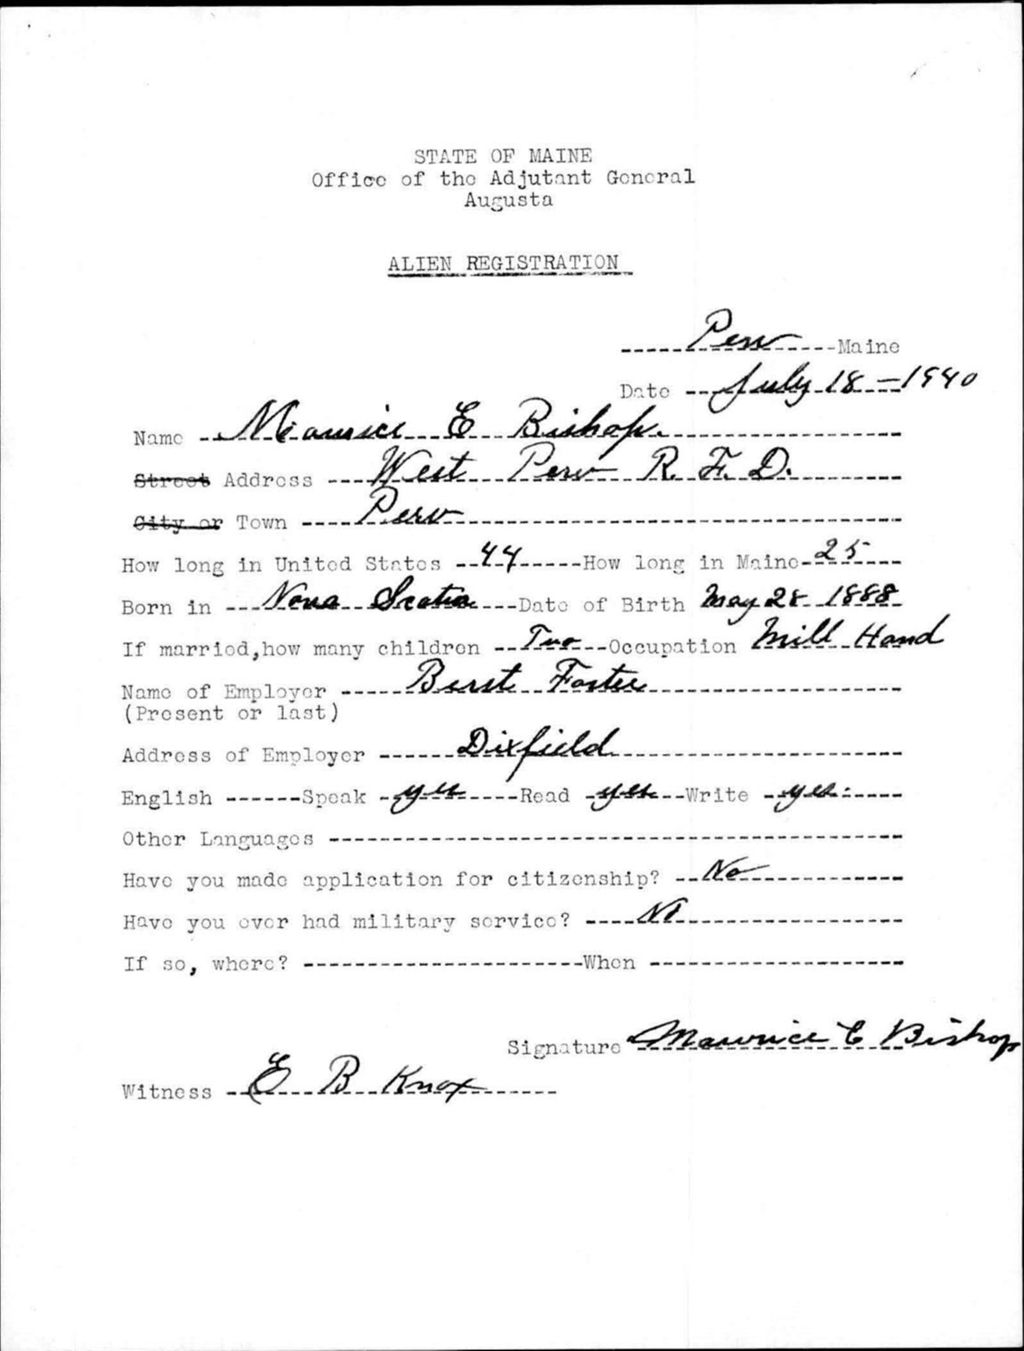 STATE OF MAINE
Office of the Adjutant General
Augusta
ALIEN REGISTRATION
Peru Maine
Date July 18 - 1940
Name Maurice E Bishop.
Street Address West Peru R. F. D.
City or Town Peru
How long in United States 44 How long in Maine 25
Born in Nova Scotia Date of Birth May 28 1888
If married, how many children Two Occupation Mill Hand
Name of Employer Berst Foster
(Present or last)
Address of Employer Dixfield
English Speak yes Read yes Write yes.
Other Languages
Have you made application for citizenship? No
Have you ever had military service? No
If so, where? When
Signature Maurice E Bishop
Witness E B Knox